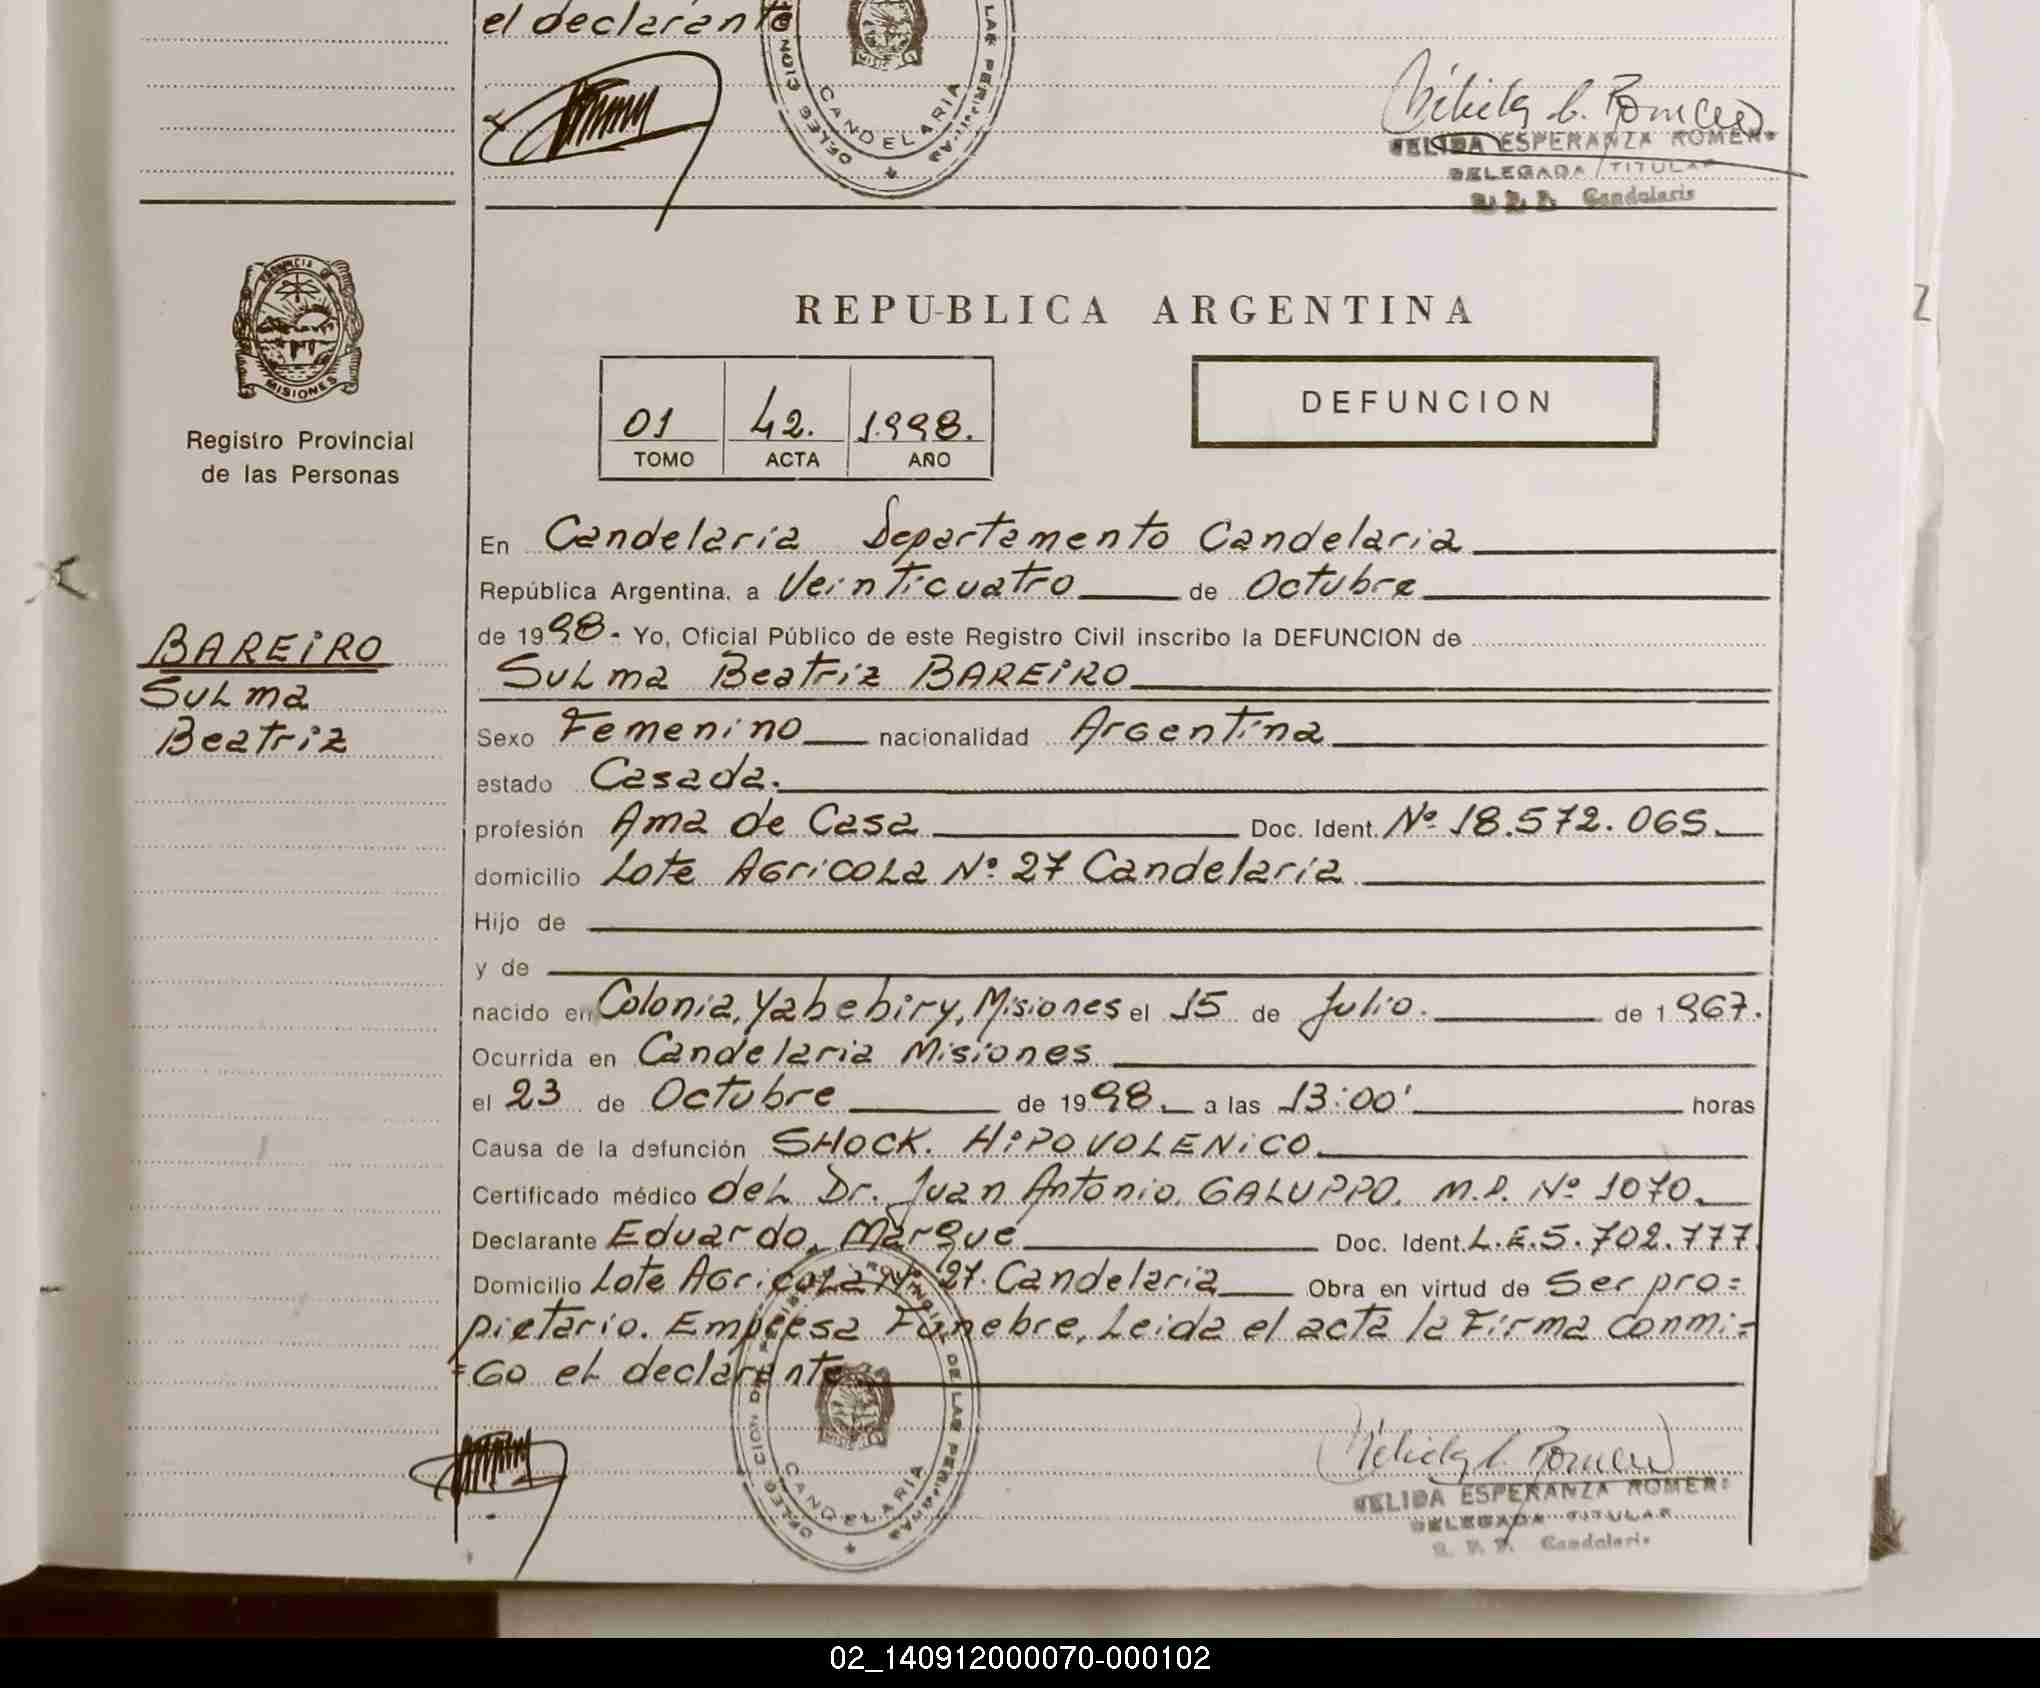 el declarante
CANDELARIA
Nélida E. Romero
NELIDA ESPERANZA ROMER
DELEGADA TITULAR
R. P. P. Candelaria
PROVINCIA D
MISIONES
Registro Provincial
de las Personas
BAREiRO
SULma
Beatriz
REPUBLICA ARGENTINA
01 42. 1.998.
TOMO ACTA AÑO
DEFUNCION
En Candelaria Departamento Candelaria
República Argentina, a Veinticuatro de Octubre
de 1998. Yo, Oficial Público de este Registro Civil inscribo la DEFUNCION de
SULma Beatriz BAREiRO
Sexo Femenino nacionalidad Argentina
estado Casada.
profesión Ama de Casa Doc. Ident. Nº 18.572.065.
domicilio Lote AGricoLa Nº 27 Candelaria
Hijo de
y de
nacido en Colonia, Yabebiry, Misiones el 15 de Julio. de 1967.
Ocurrida en Candelaria Misiones
el 23 de Octubre de 1998. a las 13:00' horas
Causa de la defunción SHOCK. HiPOVOLENiCO.
Certificado médico deL Dr. Juan Antonio. GALUPPO. M.P. Nº 1070.
Declarante Eduardo, Marque Doc. Ident. L.E.5.702.777
Domicilio Lote AGricoLa Nº 27. Candelaria Obra en virtud de Ser pro=
pietario. Empresa Fúnebre, Leida el acta la Firma conmi=
=Go eL declarante
DELEGACION
DE LAS PERSONAS
CANDELARIA
Nélida E. Romero
NELIDA ESPERANZA ROMER
DELEGADA TITULAR
R. P. P. Candelaria
02_140912000070-000102